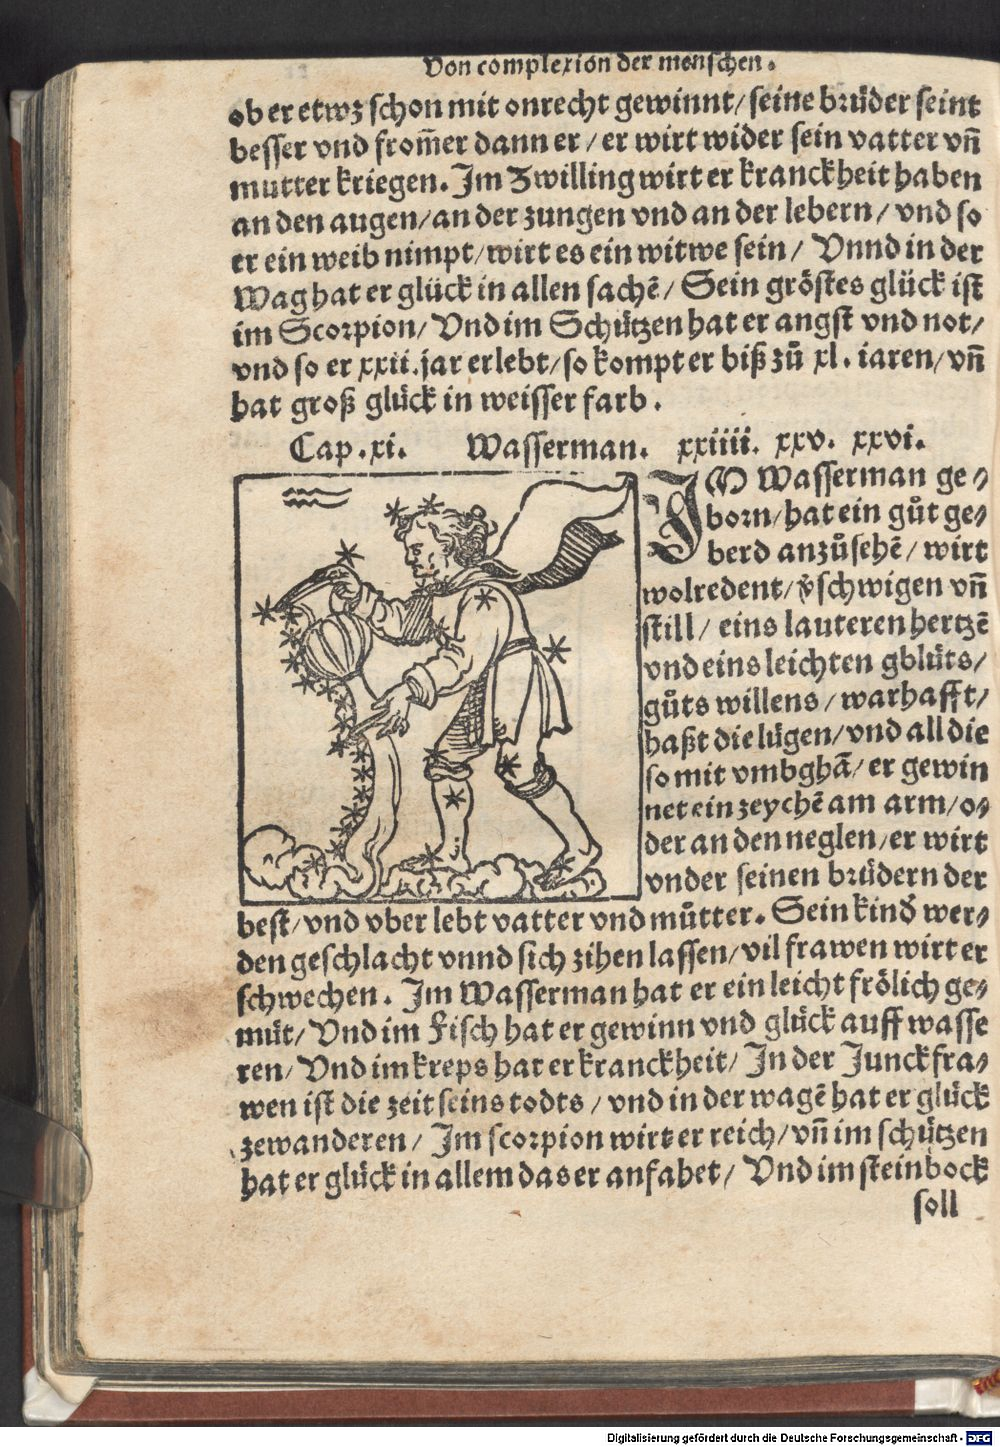 Von complexion der menschen.
ob er etwz schon mit onrecht gewinnt/ seine brůder seint
besser vnd from̄er dann er/ er wirt wider sein vatter vn̄
mutter kriegen. Im Zwilling wirt er kranckheit haben
an den augen/ an der zungen vnd an der lebern/ vnd so
er ein weib nimpt/ wirt es ein witwe sein/ Vnnd in der
Wag hat er glück in allen sachē/ Sein gröstes glück ist
im Scorpion/ Vnd im Schützen hat er angst vnd not/
vnd so er xxii. jar erlebt/ so kompt er biß zů xl. iaren/ vn̄
hat groß glück in weisser farb.
Cap. xi. Wasserman. xxiiii. xxv. xxvi.
IM Wasserman ge⸗
born/ hat ein gůt ge⸗
berd anzůsehē/ wirt
wolredent/ v̄schwigen vn̄
still/ eins lauteren hertzē
vnd eins leichten gblüts/
gůts willens/ warhafft/
haßt die lügen/ vnd all die
so mit vmbghā/ er gewin
net ein zeychē am arm/ o⸗
der an den neglen/ er wirt
vnder seinen brüdern der
best/ vnd vber lebt vatter vnd můtter. Sein kind̓ wer⸗
den geschlacht vnnd sich zihen lassen/ vil frawen wirt er
schwechen. Im Wasserman hat er ein leicht frölich ge⸗
müt/ Vnd im Fisch hat er gewinn vnd glück auff wasse
ren/ Vnd im kreps hat er kranckheit/ In der Junckfra⸗
wen ist die zeit seins todts/ vnd in der wagē hat er glück
zewanderen/ Im scorpion wirt er reich/ vn̄ im schützen
hat er glück in allem das er anfahet/ Vnd im steinbock
soll
Digitalisierung gefördert durch die Deutsche Forschungsgemeinschaft - DFG